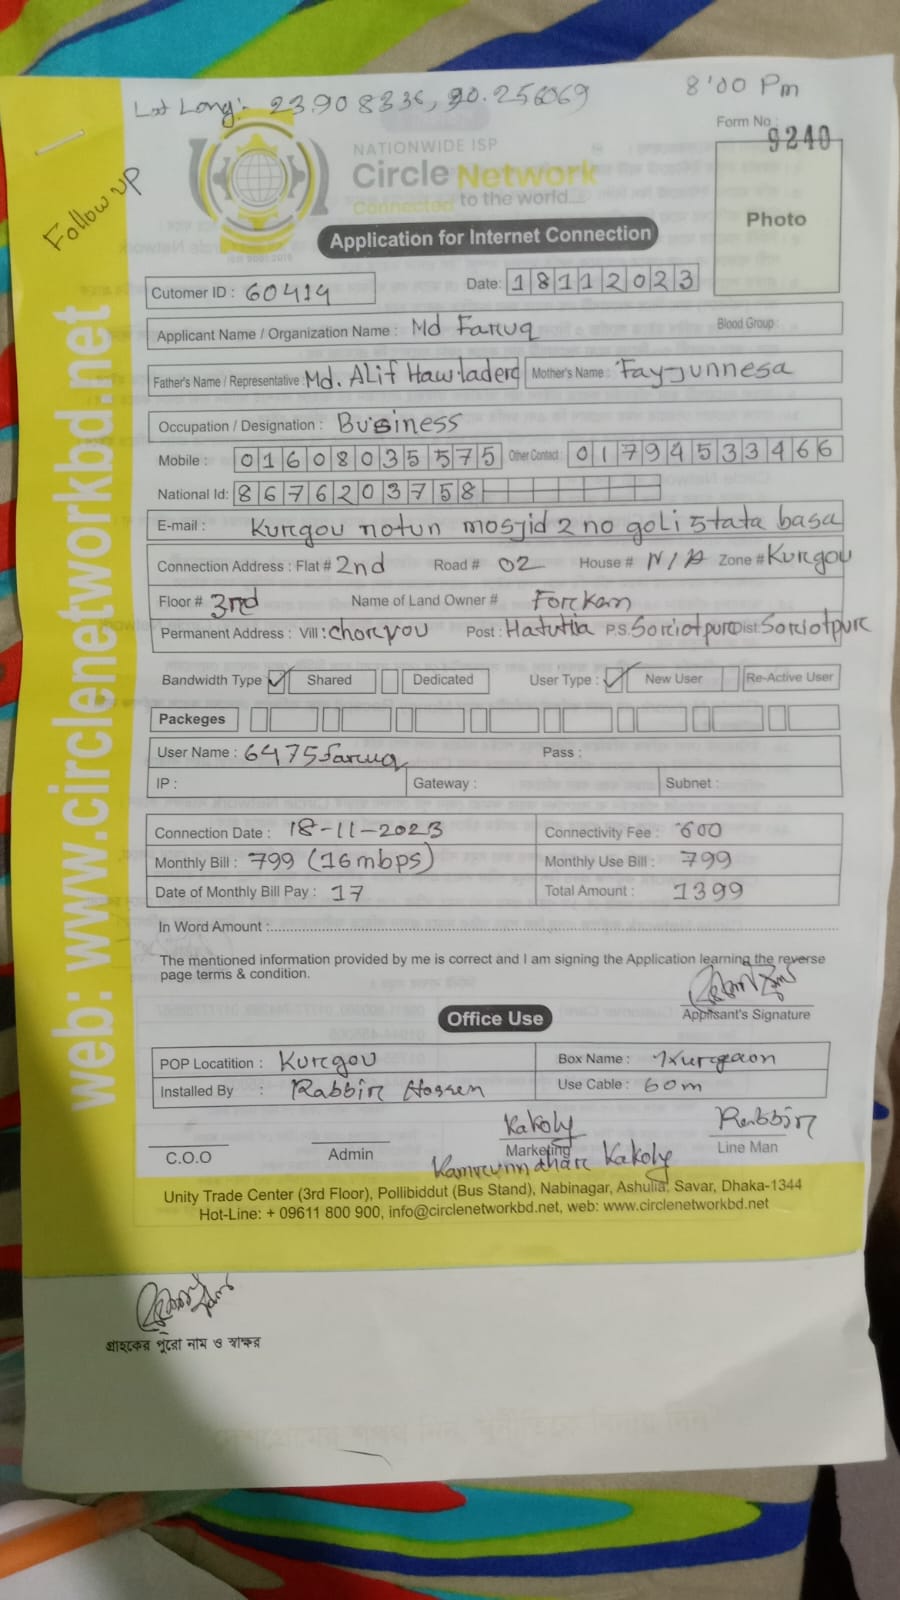 Lat Long:- 23.908336, 90.256069
8'00 Pm
Follow up
Form No :
9240
NATIONWIDE ISP
Circle Network
Connected to the world...
ISO 9001:2015
Photo
Application for Internet Connection
Cutomer ID : 60414
Date: 18112023
Applicant Name / Organization Name : Md Faruq Blood Group :
Father's Name / Representative : Md. Alif Hawlader Mother's Name : Fayjunnesa
Occupation / Designation : Business
Mobile : 01608035575 Other Contact : 01794533466
National Id: 8676203758
E-mail : Kurgou notun mosjid 2 no goli 5tata basa
Connection Address : Flat # 2nd Road # 02 House # N/A Zone # Kurgou
Floor # 3rd Name of Land Owner # Forkan
Permanent Address : Vill : choryou Post : Hatutia P.S. Soriotpur Dist. Soriotpur
Bandwidth Type ✓ Shared Dedicated User Type : ✓ New User Re-Active User
Packeges
User Name : 6475faruq Pass :
IP : Gateway : Subnet :
Connection Date : 18-11-2023 Connectivity Fee : 600
Monthly Bill : 799 (16mbps) Monthly Use Bill : 799
Date of Monthly Bill Pay : 17 Total Amount : 1399
In Word Amount :
The mentioned information provided by me is correct and I am signing the Application learning the reverse
page terms & condition.
Applisant's Signature
Office Use
POP Locatition : Kurgou Box Name : Kurgaon
Installed By : Rabbir Hossen Use Cable : 60m
Kakoly Rabbir
C.O.O Admin Marketing Line Man
Kamrunnahar Kakoly
Unity Trade Center (3rd Floor), Pollibiddut (Bus Stand), Nabinagar, Ashulia, Savar, Dhaka-1344
Hot-Line: + 09611 800 900, info@circlenetworkbd.net, web: www.circlenetworkbd.net
গ্রাহকের পুরো নাম ও স্বাক্ষর
web: www.circlenetworkbd.net